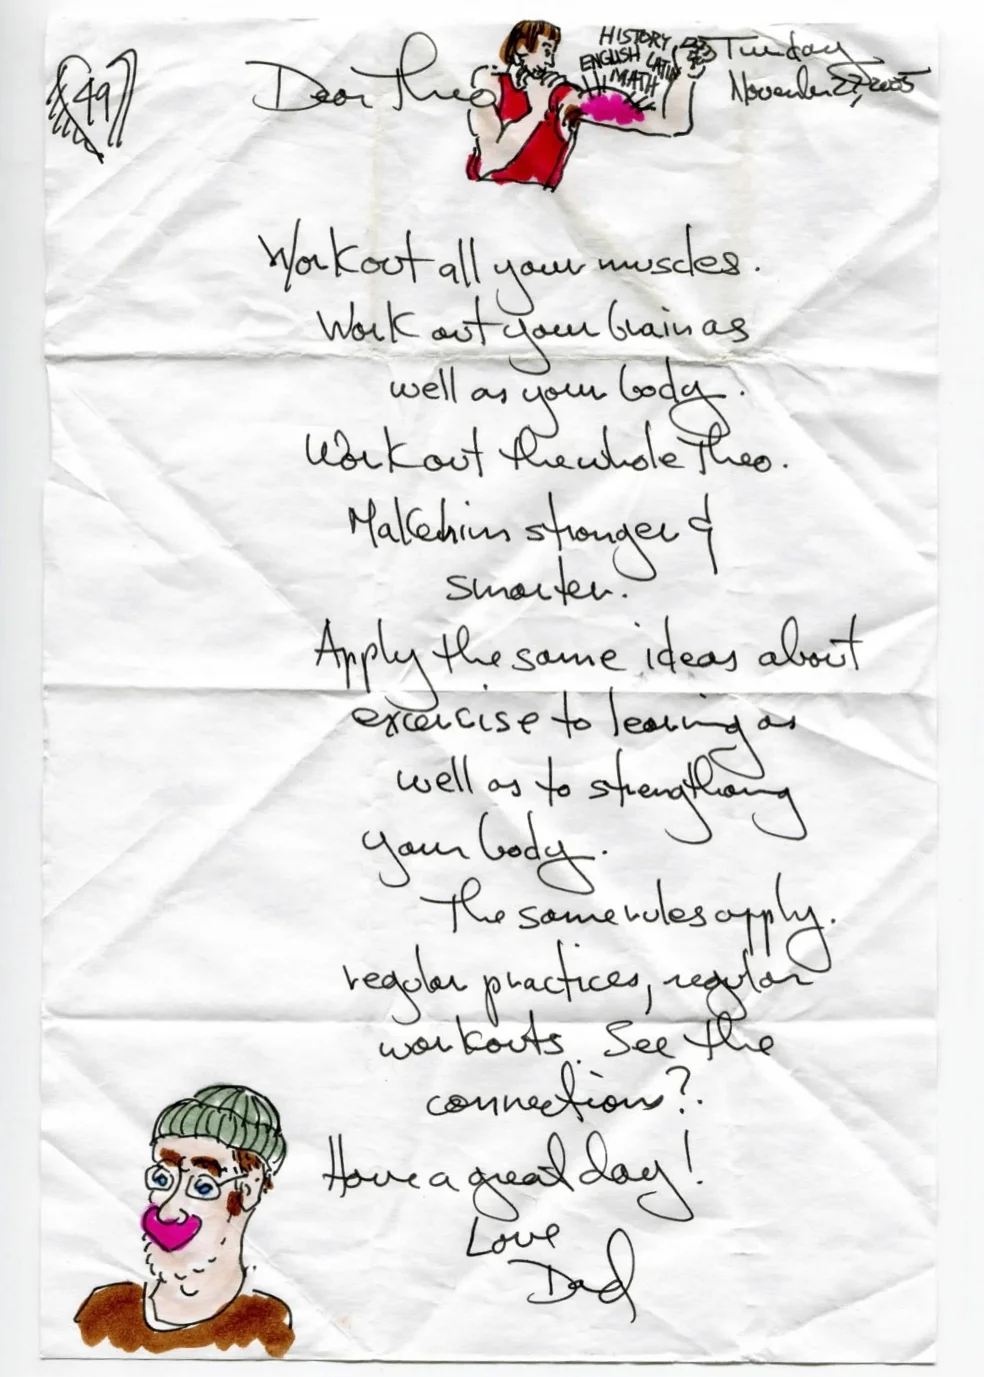 49
Dear Theo
HISTORY
ENGLISH LATIN
MATH
Tuesday
November 22, 2005
Work out all your muscles.
Work out your brain as
well as your body.
Work out the whole Theo.
Make him stronger &
smarter.
Apply the same ideas about
excercise to learning as
well as to strengthing
your body.
The same rules apply.
regular practices, regular
workouts. See the
connections?
Have a great day!
Love
Dad